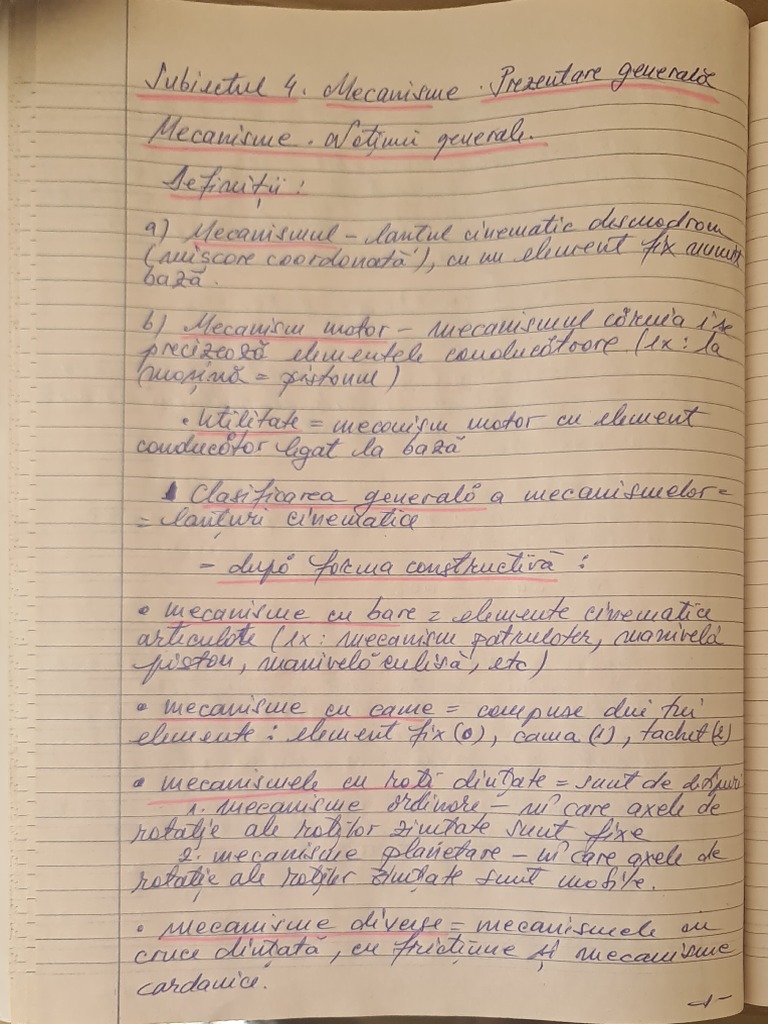 Subiectul 4. Mecanisme. Prezentare generală
Mecanisme. Noțiuni generale.
Definiții:
a) Mecanismul – lanțul cinematic desmodrom
(mișcare coordonată), cu un element fix numit
bază.
b) Mecanism motor – mecanismul căruia i se
precizează elementele conducătoare (ex: la
mașină = pistonul)
• Utilitate = mecanism motor cu element
conducător legat la bază
Clasificarea generală a mecanismelor =
= lanțuri cinematice
– după forma constructivă:
• mecanisme cu bare = elemente cinematice
articulate (ex: mecanism patrulater, manivelă
piston, manivelă culisă, etc)
• mecanisme cu came = compuse din trei
elemente: element fix (0), cama (1), tachet (2)
• mecanismele cu roți dințate = sunt de
1. mecanisme ordinare – în care axele de
rotație ale roților zințate sunt fixe
2. mecanisme planetare – în care axele de
rotație ale roților zințate sunt mobile.
• mecanisme diverse = mecanismele cu
cruce dințată, cu fricțiune și mecanisme
cardanice.
-1-